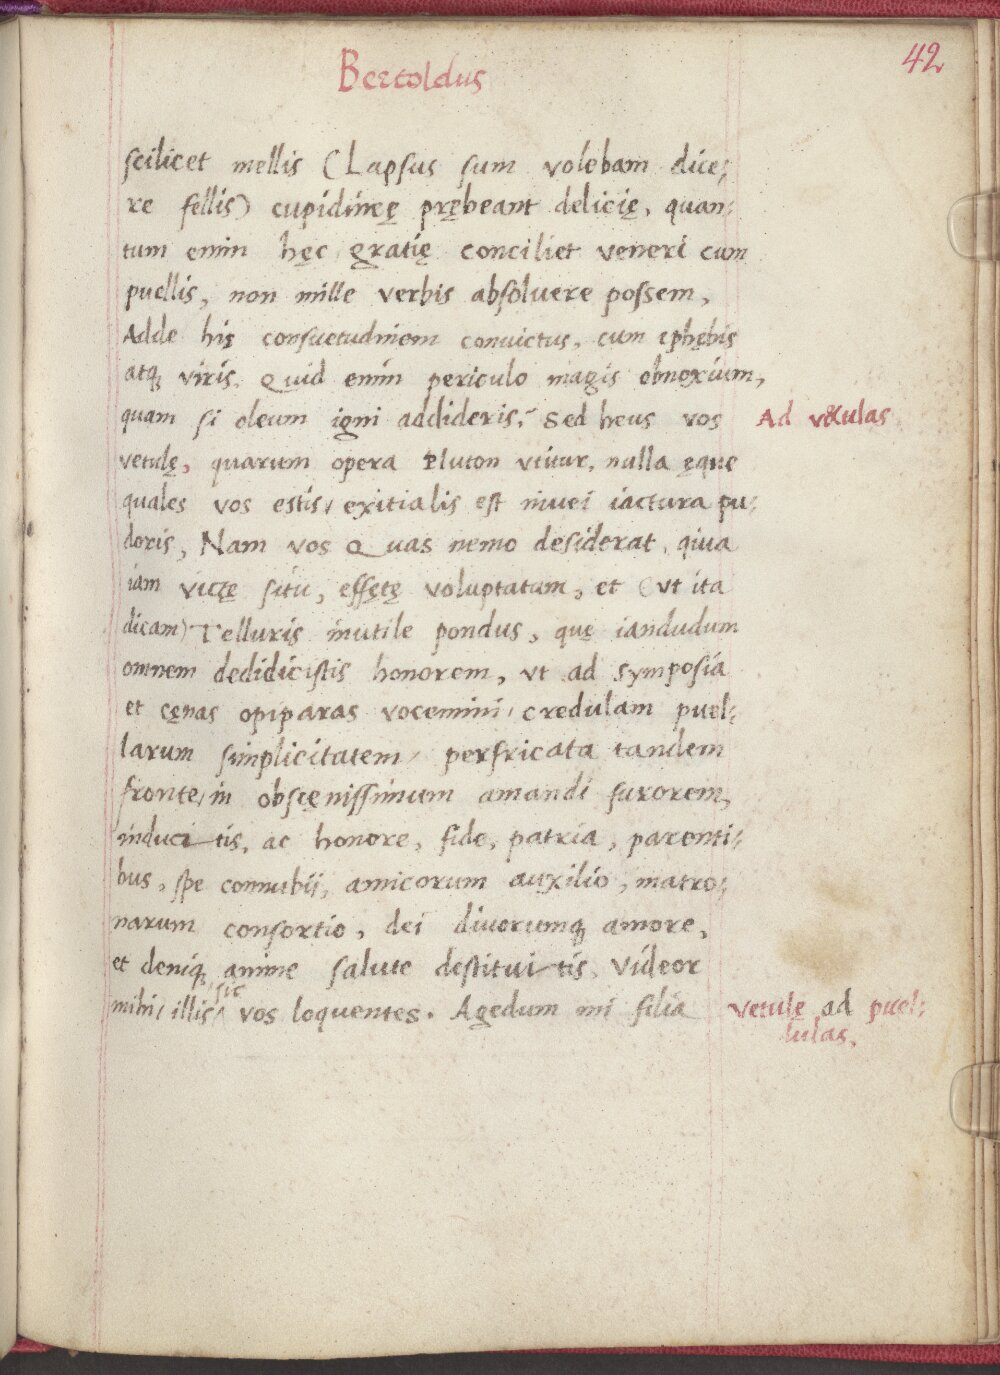 Bertoldus
42
scilicet mellis (Lapsus sum volebam dice,
re fellis) cupidineę prębeant delicię, quan:
tum enim hęc gratię conciliet veneri cum
puellis, non mille verbis absoluere possem,
Adde his consuetudinem conuictus, cum ephębis
atq; viris. Quid enim periculo magis obnoxium,
quam si oleum igni addideris? Sed heus vos
Ad vetulas
vetulę, quarum opera Pluton vtitur, nulla ęque
quales vos estis, exitialis est niuei iactura pu:
doris, Nam vos Quas nemo desiderat,
iam situ, effętę voluptatum, et (vt ita
dicam) Telluris inutile pondus, quę iandudum
omnem dedidicistis honorem, vt ad symposia
et cęnas opiparas vocemini, credulam puel:
larum simplicitatem, perfricata tandem
fronte, in obscęnissimum amandi furorem,
inducitis, ac honore, fide, patria, parenti:
bus, spe connubij, amicorum auxilio, matro:
narum consortio, dei diuorumq; amore,
et deniq; anime salute destituitis. Videor
mihi, illis sic vos loquentes. Agedum mi filia
Vetulę ad puel:
lulas.